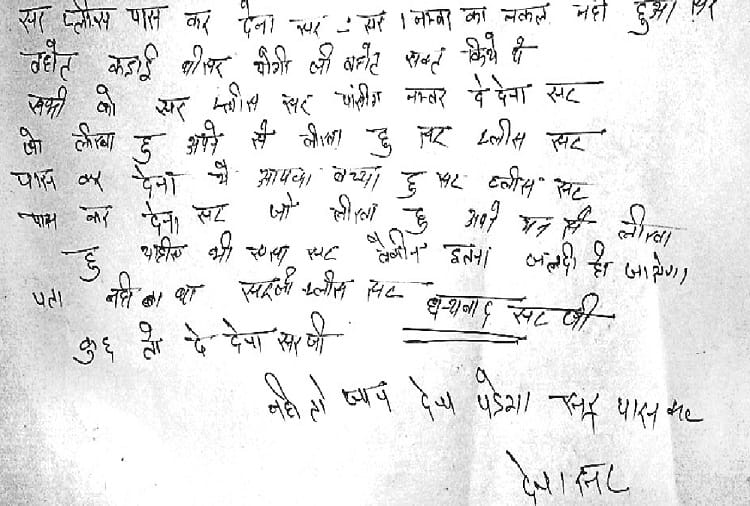 सर प्लीस पास कर देना सर - सर 1 नम्बर का नकल नही हुआ सर
बहोत कड़ाई थीसर योगी जी बहोत सक्त किये थे
सभी को सर प्लीस सर पासींग नम्बर दे देना सर
जो लीखा हु अपने से लीखा हु सर प्लीस सर
पास कर देना मै आपका बच्चा हु सर प्लीस सर
पास कर देना सर जो लीखा हु अपने मन से लीखा
हु भी सर लेकीन इतना जलदी हो जायेगा
पता नही था सरजी प्लीस सर धन्यबाद सर जी
कुछ तो दे देना सरजी
नही तो देना पडेगा सर पास कर
देना सर